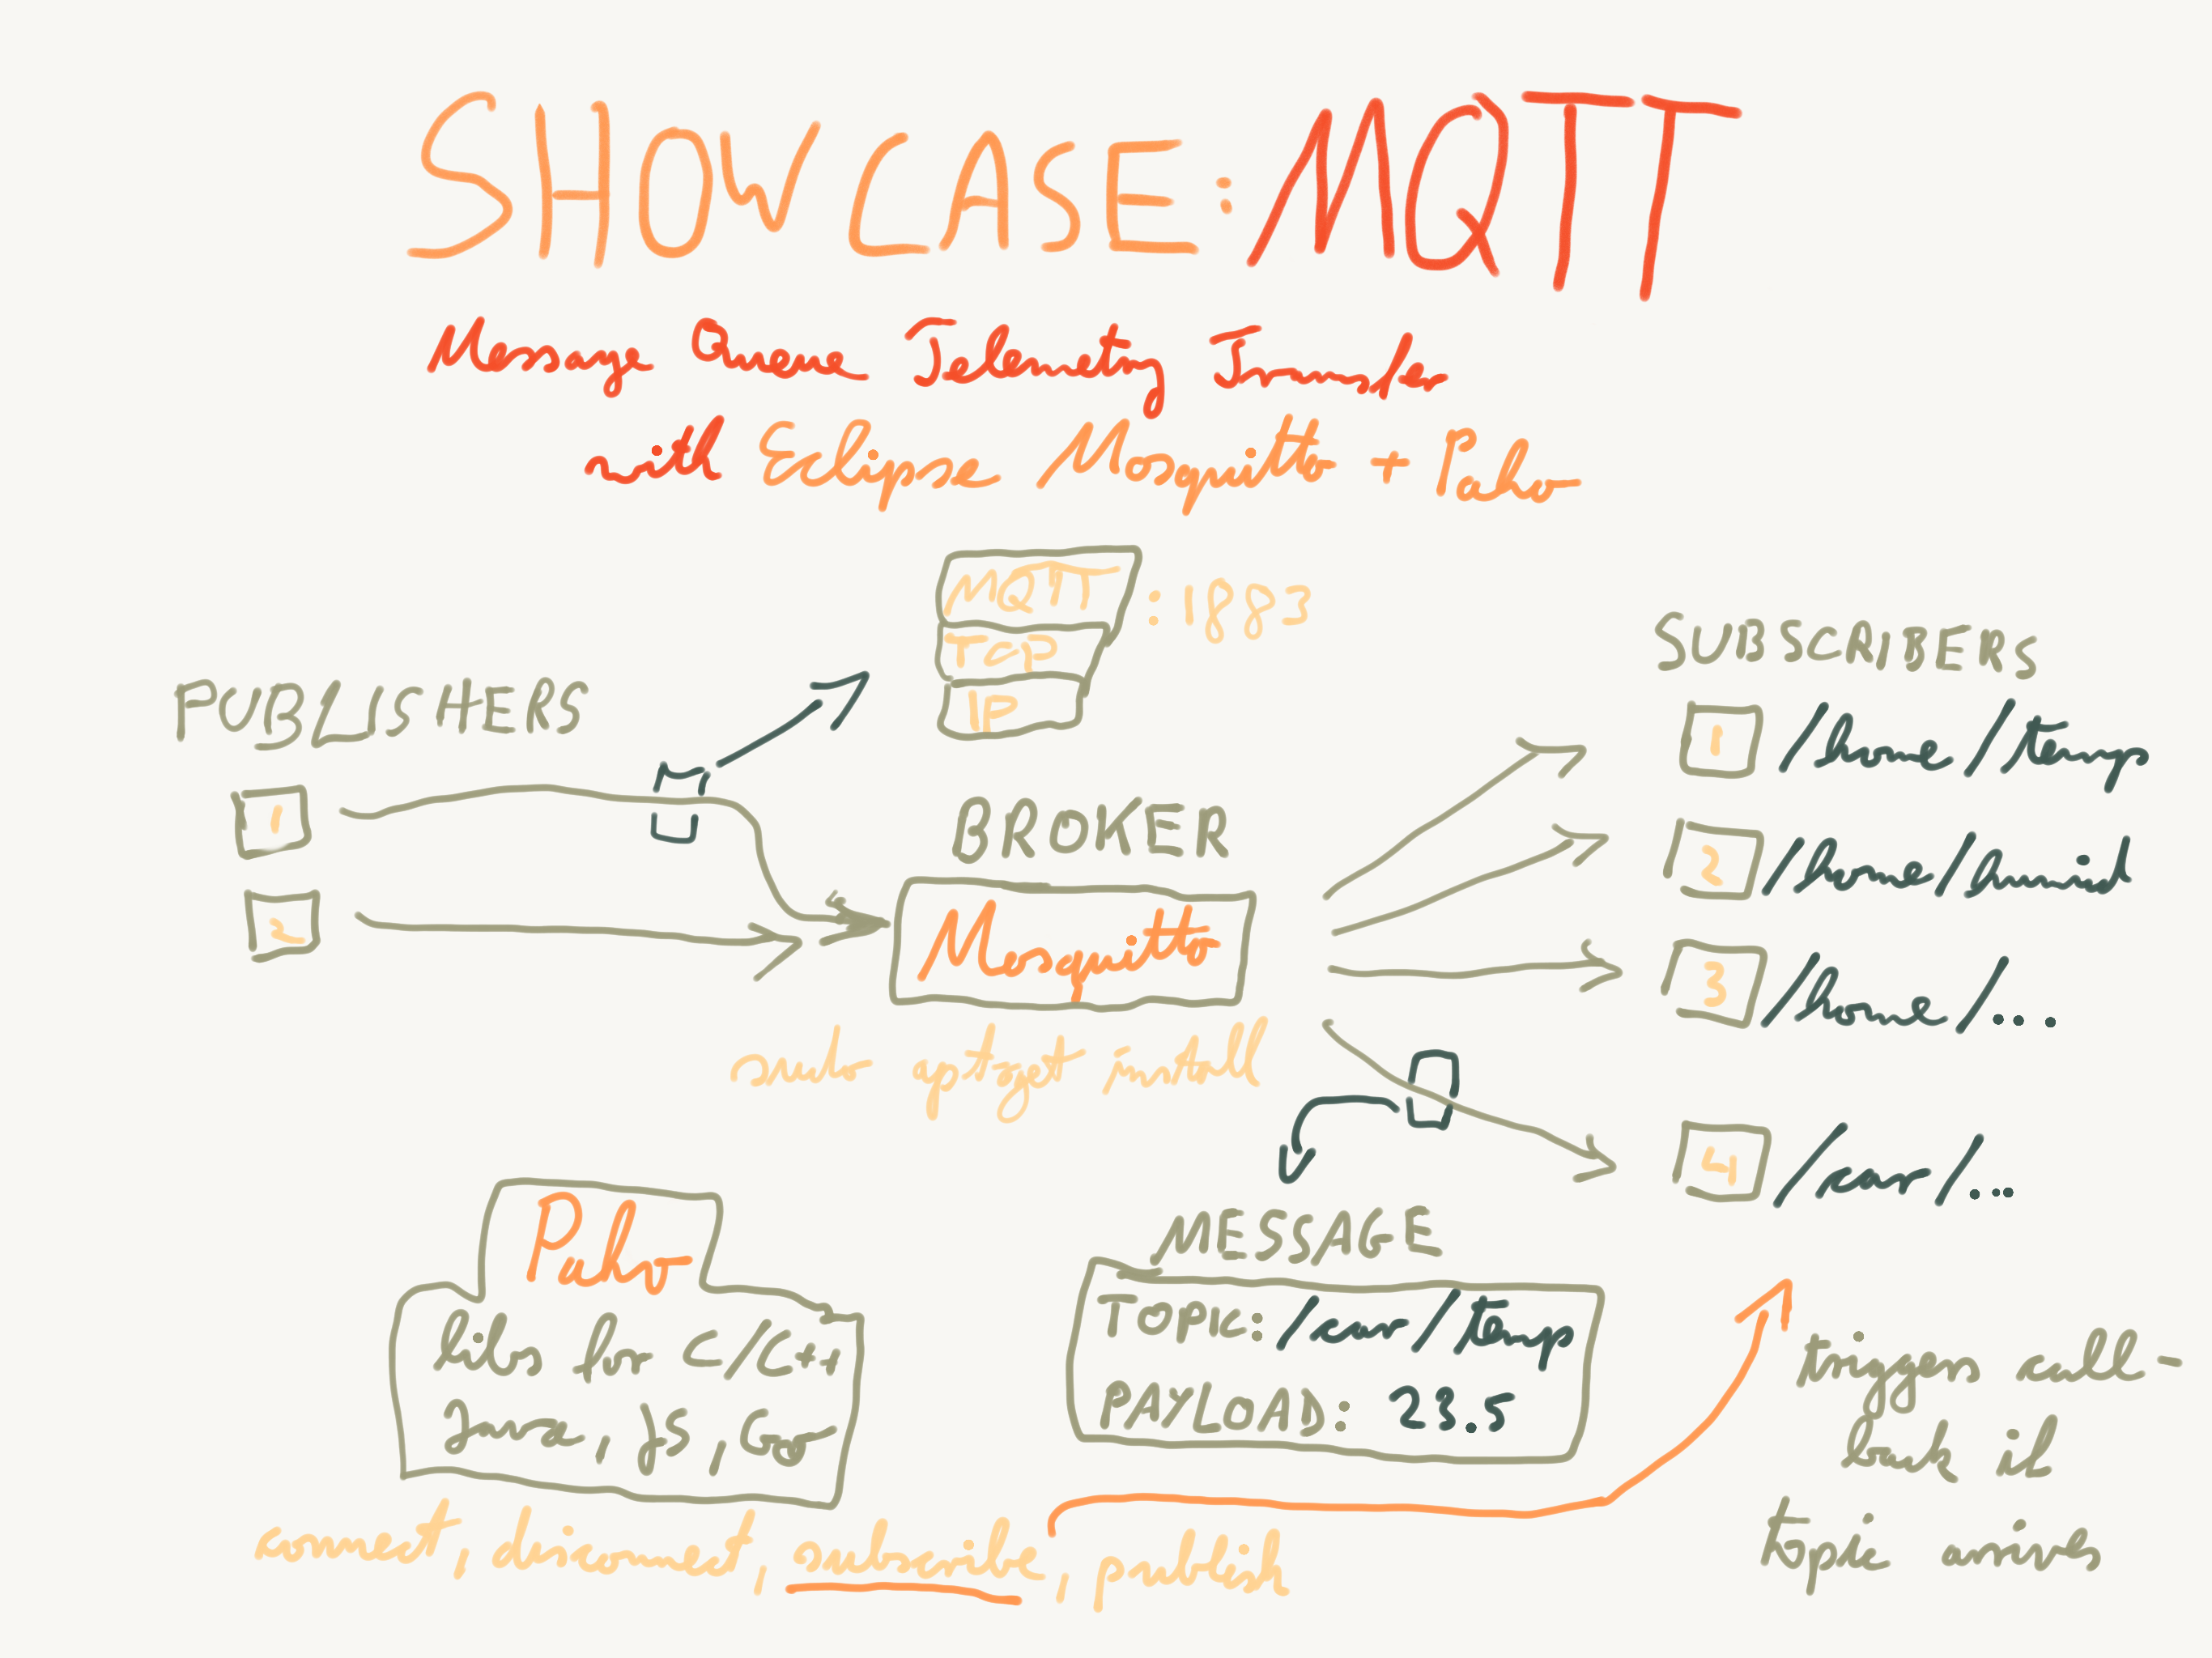 SHOWCASE: MQTT
Message Queue Telemetry Transfer
with Eclipse Mosquitto + Paho
MQTT :1883
TCP
IP
PUBLISHERS
1
2
BROKER
Mosquitto
sudo apt-get install
SUBSCRIBERS
1 /home/temp
2 /home/humid
3 /home/...
4 /car/...
MESSAGE
TOPIC: /car/temp
PAYLOAD: 23.5
Paho
libs for C/C++
Java, JS, Go
connect, disconnect, subscribe, publish
triggers call-
back if
topic arrives